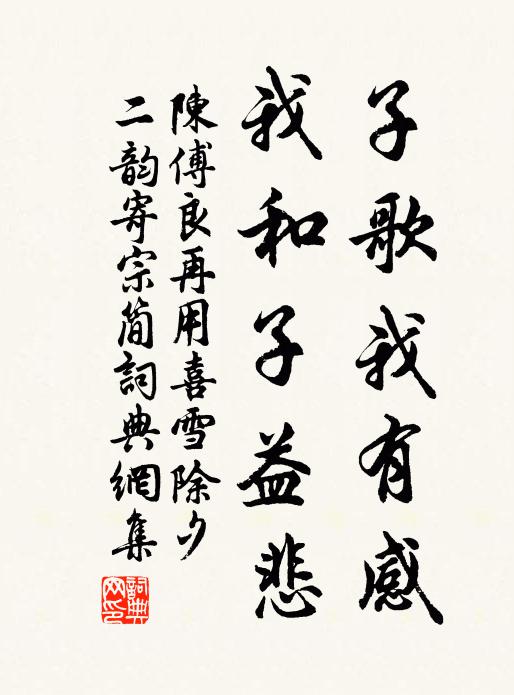 子歌我有感
我和子益悲
陳傅良再用喜雪除夕
二韵寄宗簡詞典網集
詞典
网印